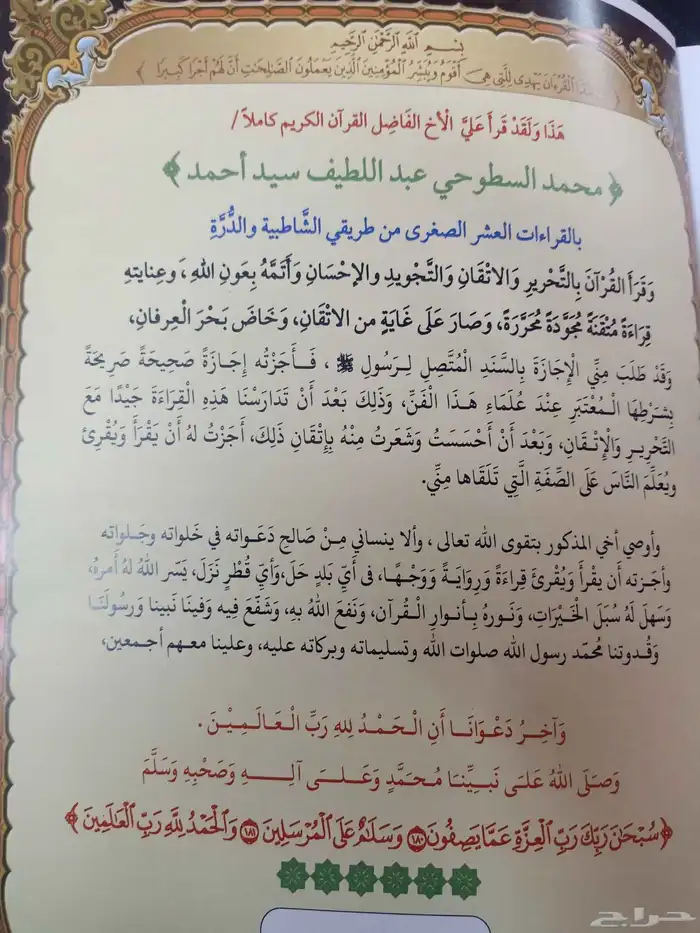 بِسْمِ اللَّهِ الرَّحْمَنِ الرَّحِيمِ
هَذَا الْقُرْءَانَ يَهْدِى لِلَّتِى هِىَ أَقْوَمُ وَيُبَشِّرُ الْمُؤْمِنِينَ الَّذِينَ يَعْمَلُونَ الصَّالِحَاتِ أَنَّ لَهُمْ أَجْرًا كَبِيرًا ﴾
هَذَا وَلَقَدْ قَرأَ عَليَّ الْأخ الفَاضِل القرآن الكريم كاملاً /
﴿ محمد السطوحي عبد اللطيف سيد أحمد ﴾
بالقراءات العشر الصغرى من طريقي الشَّاطبية والدُّرَّةِ
وَقَرَأَ القُرْآنَ بِالتَّحْرِيرِ وَالاتْقَانِ وَالتَّجْوِيدِ والإحْسَانِ وَأَتَمَّهُ بِعَونِ اللهِ ، وعِنايتهِ
قِرَاءَةً مُتْقَنَةً مُجَوَّدَةً مُحَرَّرَةً، وَصَارَ عَلَى غَايَةٍ من الاتْقَانِ، وَخَاضَ بَحْرَ الْعِرفانِ،
وَقَدْ طَلَبَ مِنِّي الْإِجَازَةَ بِالسَّنَدِ الْمُتَّصِلِ لِـرَسُولِ ﷺ ، فَـأَجَزْتُه إِجَـازَةً صَحِيحَةً صَرِيحَةً
بِشَرْطِهَا الْـمُعْتَبَرِ عِنْدَ عُلَمَاءِ هَـذَا الْفَنِّ، وَذَلِكَ بَعْدَ أَنْ تَدَارَسْنَا هَذِهِ الْقِرَاءَةَ جَيِّدًا مَعَ
التَّحْرِيرِ وَالْإِتْـقَانِ، وَبَعْدَ أَنْ أَحْسَسْتُ وَشَعَرتُ مِنْهُ بِإِتْقَانِ ذَلِكَ، أَجَزْتُ لهُ أَنْ يَقْرَأَ وَيُقْرِئَ
ويُعَلِّمَ النَّاسَ عَلَى الصِّفَةِ الَّتِي تَلَقَاها مِنِّي.
وأوصي أخي المذكور بتقوى الله تعالى ، وألا ينساني مِـنْ صَالحِ دَعَـوَاته في خَلواته وجَـلواته
وأجَـزته أن يقْرأَ وَيُقْرِئَ قِراءَةً وَرِوايَـةً وَوَجْـهًـا، فى أيِّ بَلدٍ حَلَ، وَأيِّ قُطْرٍ نَزَلَ، يَسّر اللهُ لهُ أَمرهُ،
وَسَهلَ لهُ سُبَلَ الْخَيْرَاتِ، وَنَـورهُ بِـأنـوارِ الْـقُـرآن، وَنَفعَ اللهُ بهِ، وَشَفَعَ فِيه وفينَا نَبينا وَرسُولَنَـا
وَقُـدوتنا مُحمّد رسول الله صلوات الله وتسليماته وبركاته عليه، وعلينا معـهم أجـمعين،
وَآخِـرُ دَعْـوَانَـا أَنِ الْـحَـمْـدُ لِلهِ رَبِّ الْـعَـالَـمِـيْـنَ .
وَصَلَى اللهُ عَلَى نَبِـيِّنِنَا مُـحَمَّدٍ وَعَـلَـى آلِـــهِ وَصَحْبِهِ وَسَلَّمَ
﴿ سُبْحَٰنَ رَبِّكَ رَبِّ الْعِزَّةِ عَمَّا يَصِفُونَ ١٨٠ وَسَلَٰمٌ عَلَى الْمُرْسَلِينَ ١٨١ وَالْحَمْدُ لِلَّهِ رَبِّ الْعَالَمِينَ ﴾
حراج